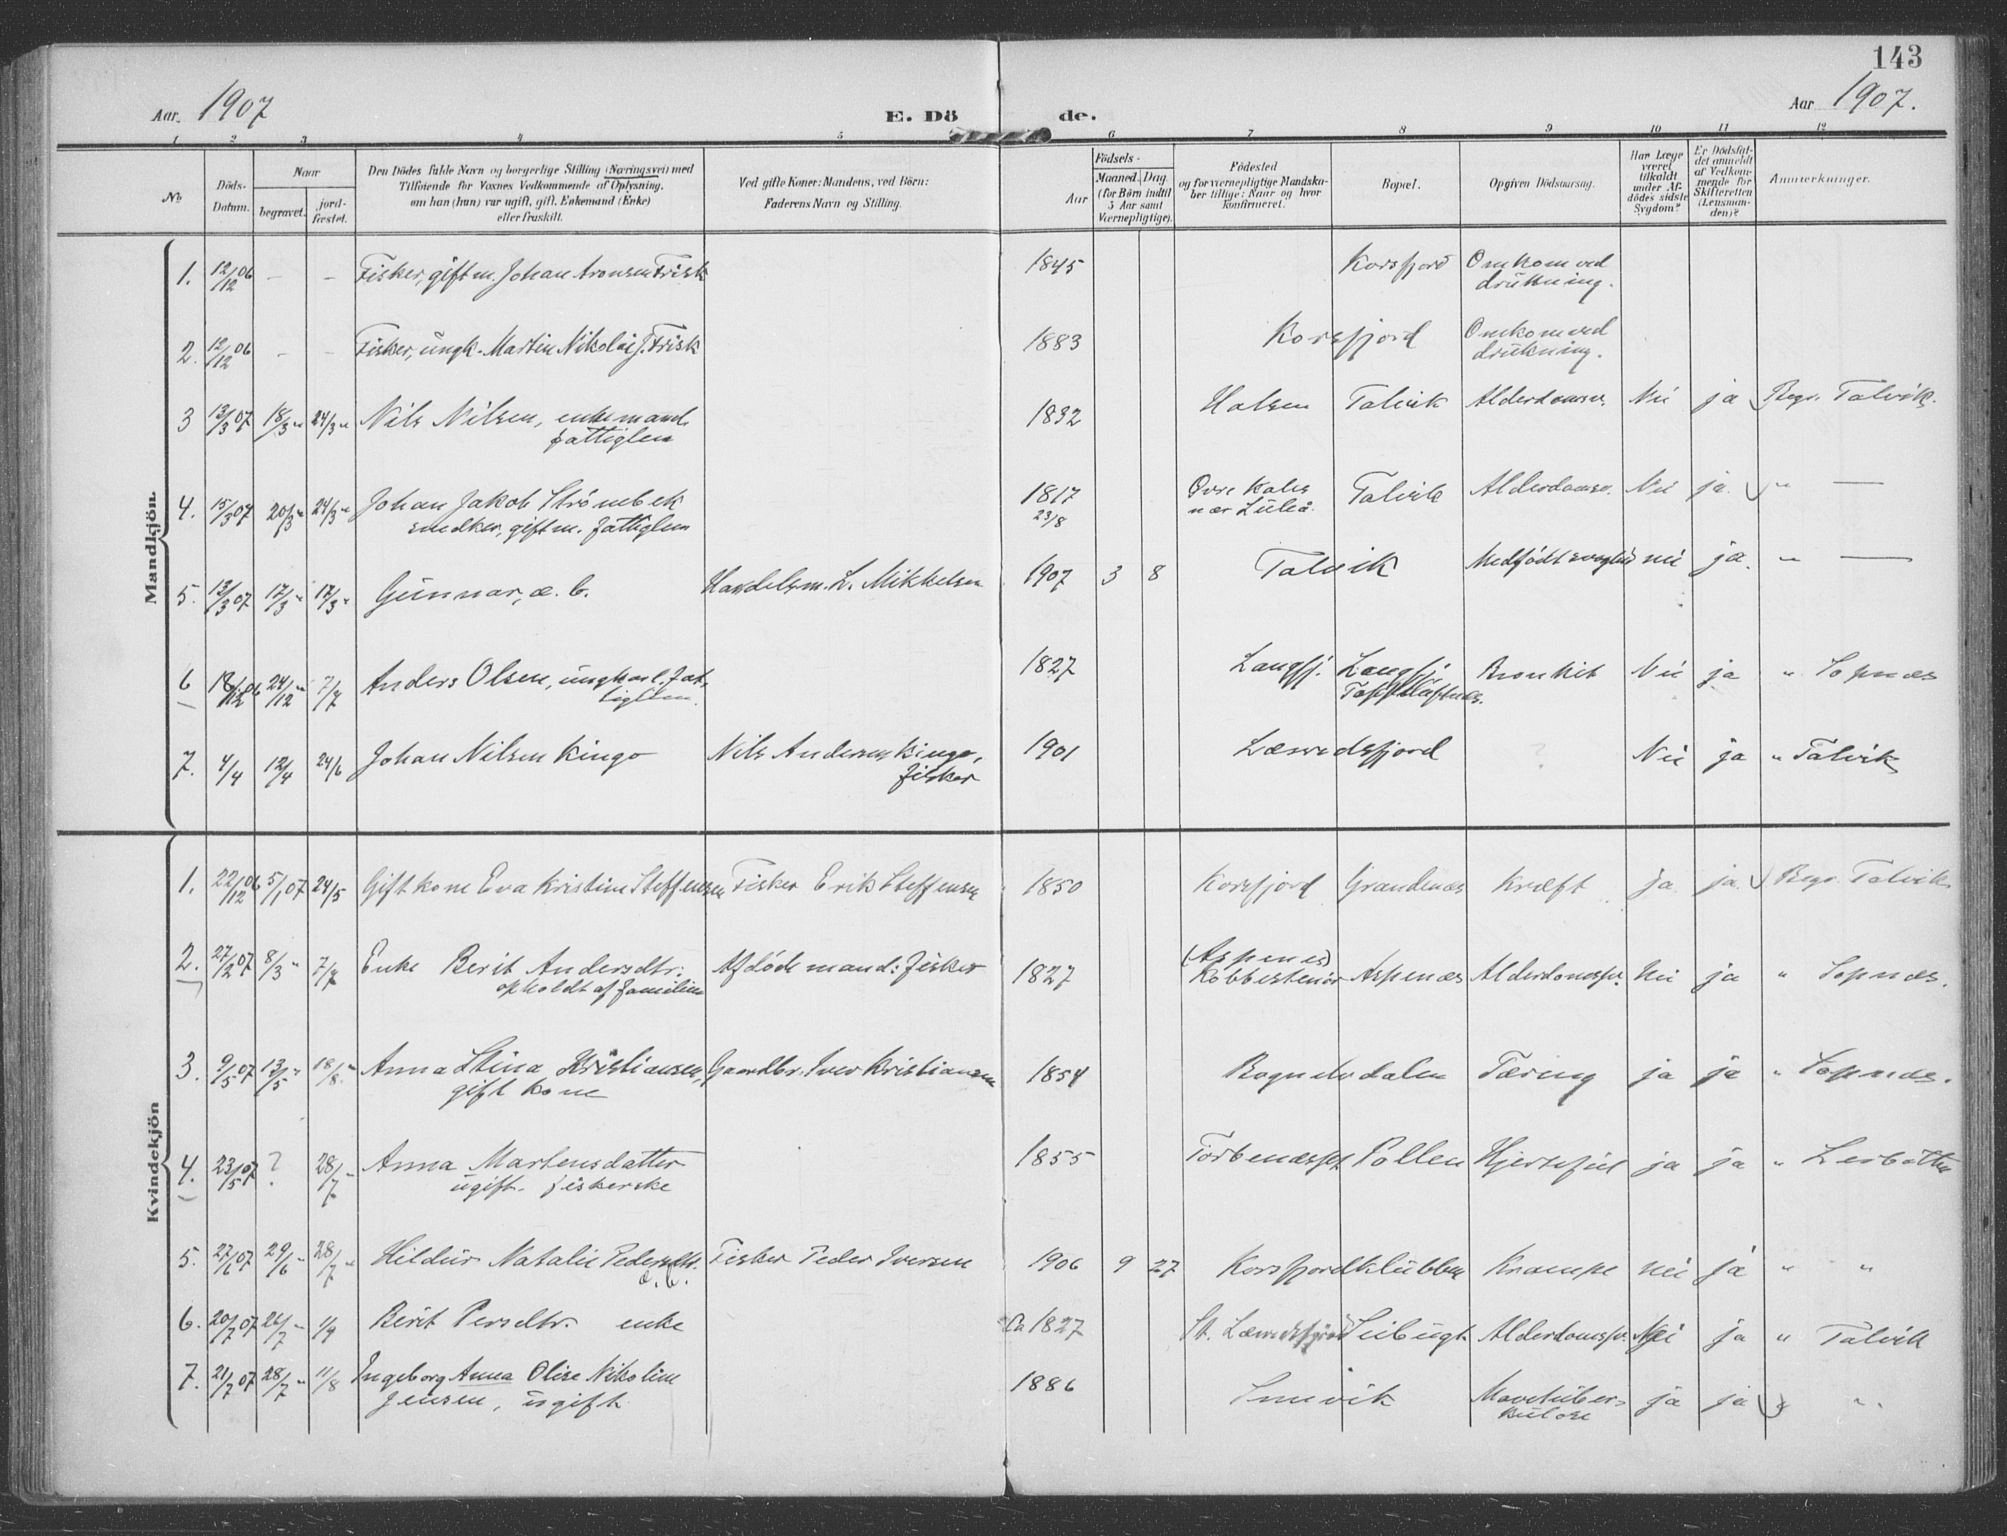 143
Aar. 1907
E. Dö de.
Aar 1907.
1 2 3 4 5 6 7 8 9 10 11 12
No
Döds-Datum.
Naar
begravet.
jord-fæstet.
Den Dödes fulde Navn og borgerlige Stilling (Næringsvei) med
Tilföiende for Voxnes Vedkommende af Oplysning,
om han (hun) var ugift, gift, Enkemand (Enke)
eller fraskilt.
Ved gifte Koner: Mandens, ved Börn:
Faderens Navn og Stilling.
Födsels-
Aar
Maaned. Dag
(for Börn indtil
5 Aar samt
Værnepligtige).
Födested
og for værnepligtige Mandska-
ber tillige: Naar og hvor
konfirmeret.
Bopæl.
Opgiven Dödsaarsag.
Har Læge
været
tilkaldt
under Af-
dödes sidste
Sygdom?
Er Dödsfal-
det anmeldt
af Vedkom-
mende for
Skifteretten
(Lensman-
den)?
Anmærkninger.
Mandkjön.
1. 12/12 06 - - Fisker, gift m. Johan Aronsen Frisk 1845 Korsfjord Omkom ved
drukning.
2. 12/12 06 - - Fisker, ungk. Martin Nikolai J. Frisk 1883 Korsfjord Omkom ved
drukning.
3 13/3 07 18/3 " 24/3 " Nils Nilsen, enkemand. 1832 Halsen Talvik Alderdomssv. Nei ja Begr. Talvik.
fattiglem
4. 15/3 07 20/3 " 24/3 " Johan Jakob Strömbek 1817 Övre Kalix Talvik Alderdomssv. Nei ja. " —
snedker, gift m. fattiglem 23/8 nær Luleå.
5. 13/3 07 17/3 " 17/3 " Gunnar, æ. b. Handelsm. L. Mikkelsen 1907 3 8 Talvik Medfödt svaghed nei ja. " —
6 18/12 06 24/12 " 7/7 Anders Olsen, ungkarl. fat- 1827 Langfj. Langfj. Bronkit Nei ja " Sopnæs
tiglem.
7. 4/4 12/4 24/6 Johan Nilsen Kingo Nils Andersen Kingo, 1901 Læredsfjord ? Nei ja " Talvik
fisker
Kvindekjön
1. 22/12 06 5/1 07 24/5 Gift kone Eva Kristine Steffensen Fisker Erik Steffensen 1850 Korsfjord Grandenæs Kræft ja. ja. Begr. Talvik
2. 27/2 07 8/3 " 7/7 Enke Berit Andersdtr. Afdöde mand: fisker 1827 (Aspenes) Aspenæs Alderdomssv. Nei ja " Sopnæs.
opholdt af familien
3. 9/5 07 13/5 " 18/8 " Anna Stina Kristiansen, Gaardbr. Iver Kristiansen 1854 Bognelvdalen Tæring ja ja " Sopnæs.
gift kone
4. 23/5 07 ? 28/7 " Anna Martensdatter 1855 Pollen Hjertefeil ja ja "
ugift. fiskerske
5. 27/6 07 29/6 " 28/7 " Hildur Natalie Pedersdtr. Fisker Peder Iversen 1906 9 27 Korsfjordklubben Krampe nei ja " "
æ. b.
6. 20/7 07 26/7 " 1/9 Berit Persdtr. enke Ca 1827 St. Læredsfjord Leibugt Alderdomssv. Nei ja " Talvik
7. 21/7 07 28/7 " 11/8 Ingeborg Anna Olise Nikoline 1886 Simavik Mavetuber- ja ja " ".
Jensen, ugift. kulose